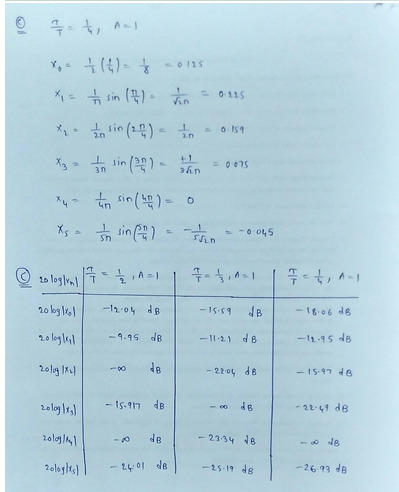 ⓒ τ/T = 1/4, A=1
X₀ = 1/2 (1/4) = 1/8 = 0.125
X₁ = 1/π sin (π/4) = 1/√2π = 0.225
X₂ = 1/2π sin (2π/4) = 1/2π = 0.159
X₃ = 1/3π sin (3π/4) = +1/3√2π = 0.075
X₄ = 1/4π sin (4π/4) = 0
X₅ = 1/5π sin (5π/4) = -1/5√2π = -0.045
ⓒ 20log|Xn| τ/T = 1/2, A=1 τ/T = 1/3, A=1 τ/T = 1/4, A=1
20log|X₀| -12.04 dB -15.59 dB -18.06 dB
20log|X₁| -9.95 dB -11.21 dB -12.95 dB
20log|X₂| -∞ dB -22.04 dB -15.97 dB
20log|X₃| -15.917 dB -∞ dB -22.49 dB
20log|X₄| -∞ dB -23.34 dB -∞ dB
20log|X₅| -24.01 dB -25.19 dB -26.93 dB